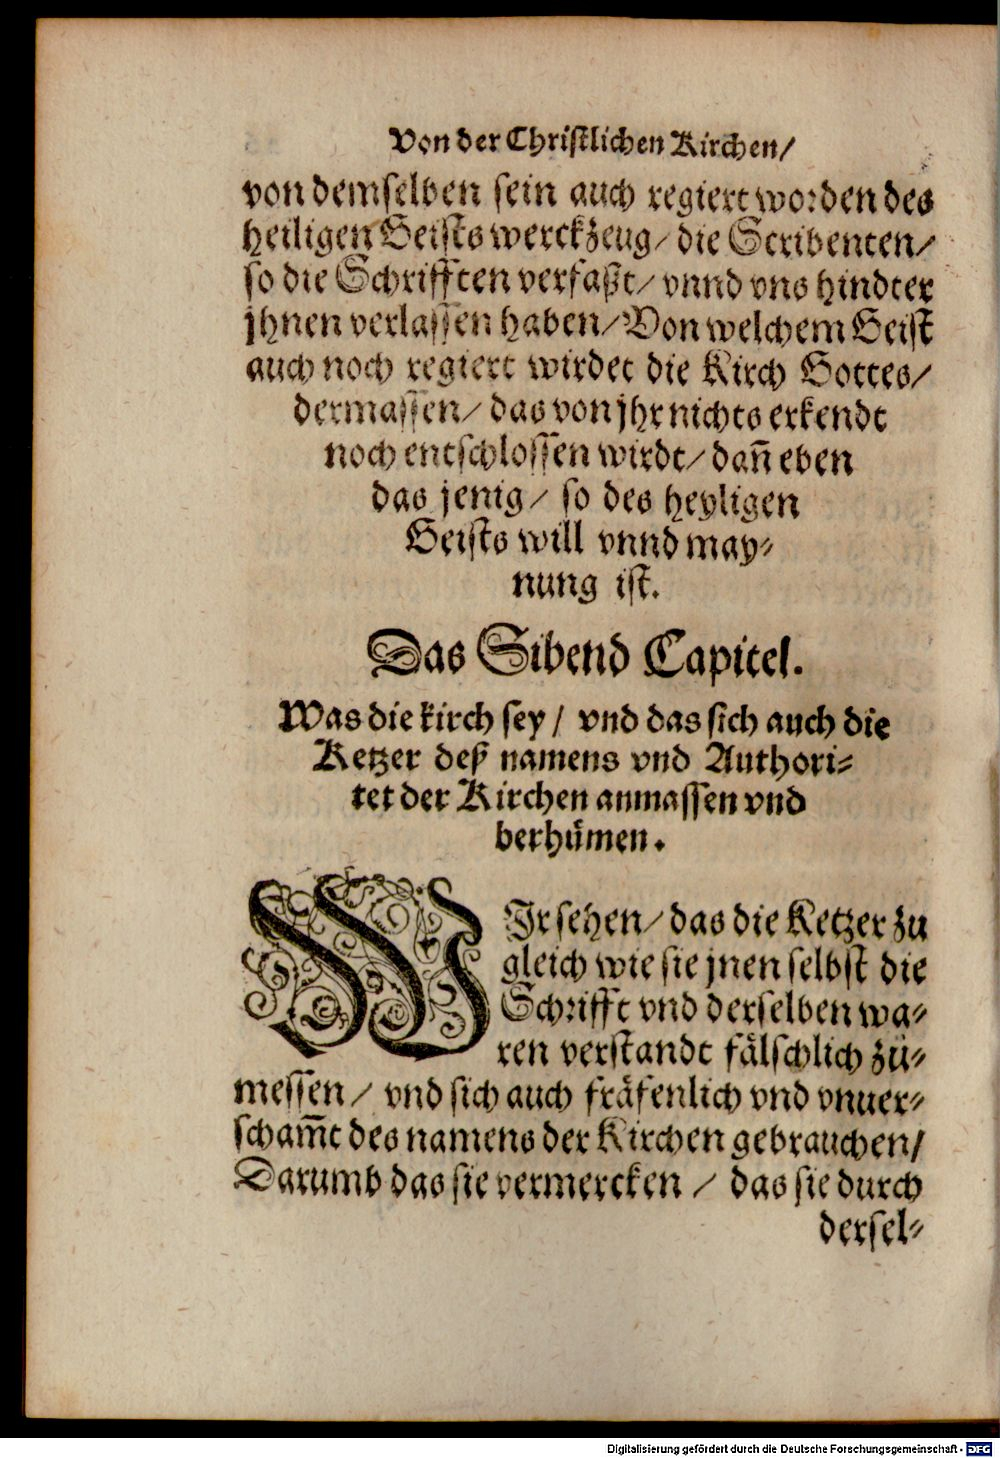 Von der Christlichen Kirchen/
von demselben sein auch regiert worden des
heiligen Geists werckzeug/ die Scribenten/
so die Schrifften verfaßt/ vnnd vns hindter
jhnen verlassen haben/ Von welchem Geist
auch noch regiert wirdet die Kirch Gottes/
dermassen/ das von jhr nichts erkendt
noch entschlossen wirdt/ dañ eben
das jenig/ so des heyligen
Geists will vnnd may⸗
nung ist.
Das Sibend Capitel.
Was die kirch sey/ vnd das sich auch die
Ketzer deß namens vnd Authori⸗
tet der Kirchen anmassen vnd
berhůmen.
WIr sehen/ das die Ketzer zu
gleich wie sie jnen selbst die
Schrifft vnd derselben wa⸗
ren verstandt fälschlich zů⸗
messen/ vnd sich auch fräfenlich vnd vnuer⸗
scham̃t des namens der Kirchen gebrauchen/
Darumb das sie vermercken/ das sie durch
dersel⸗
Digitalisierung gefördert durch die Deutsche Forschungsgemeinschaft - DFG